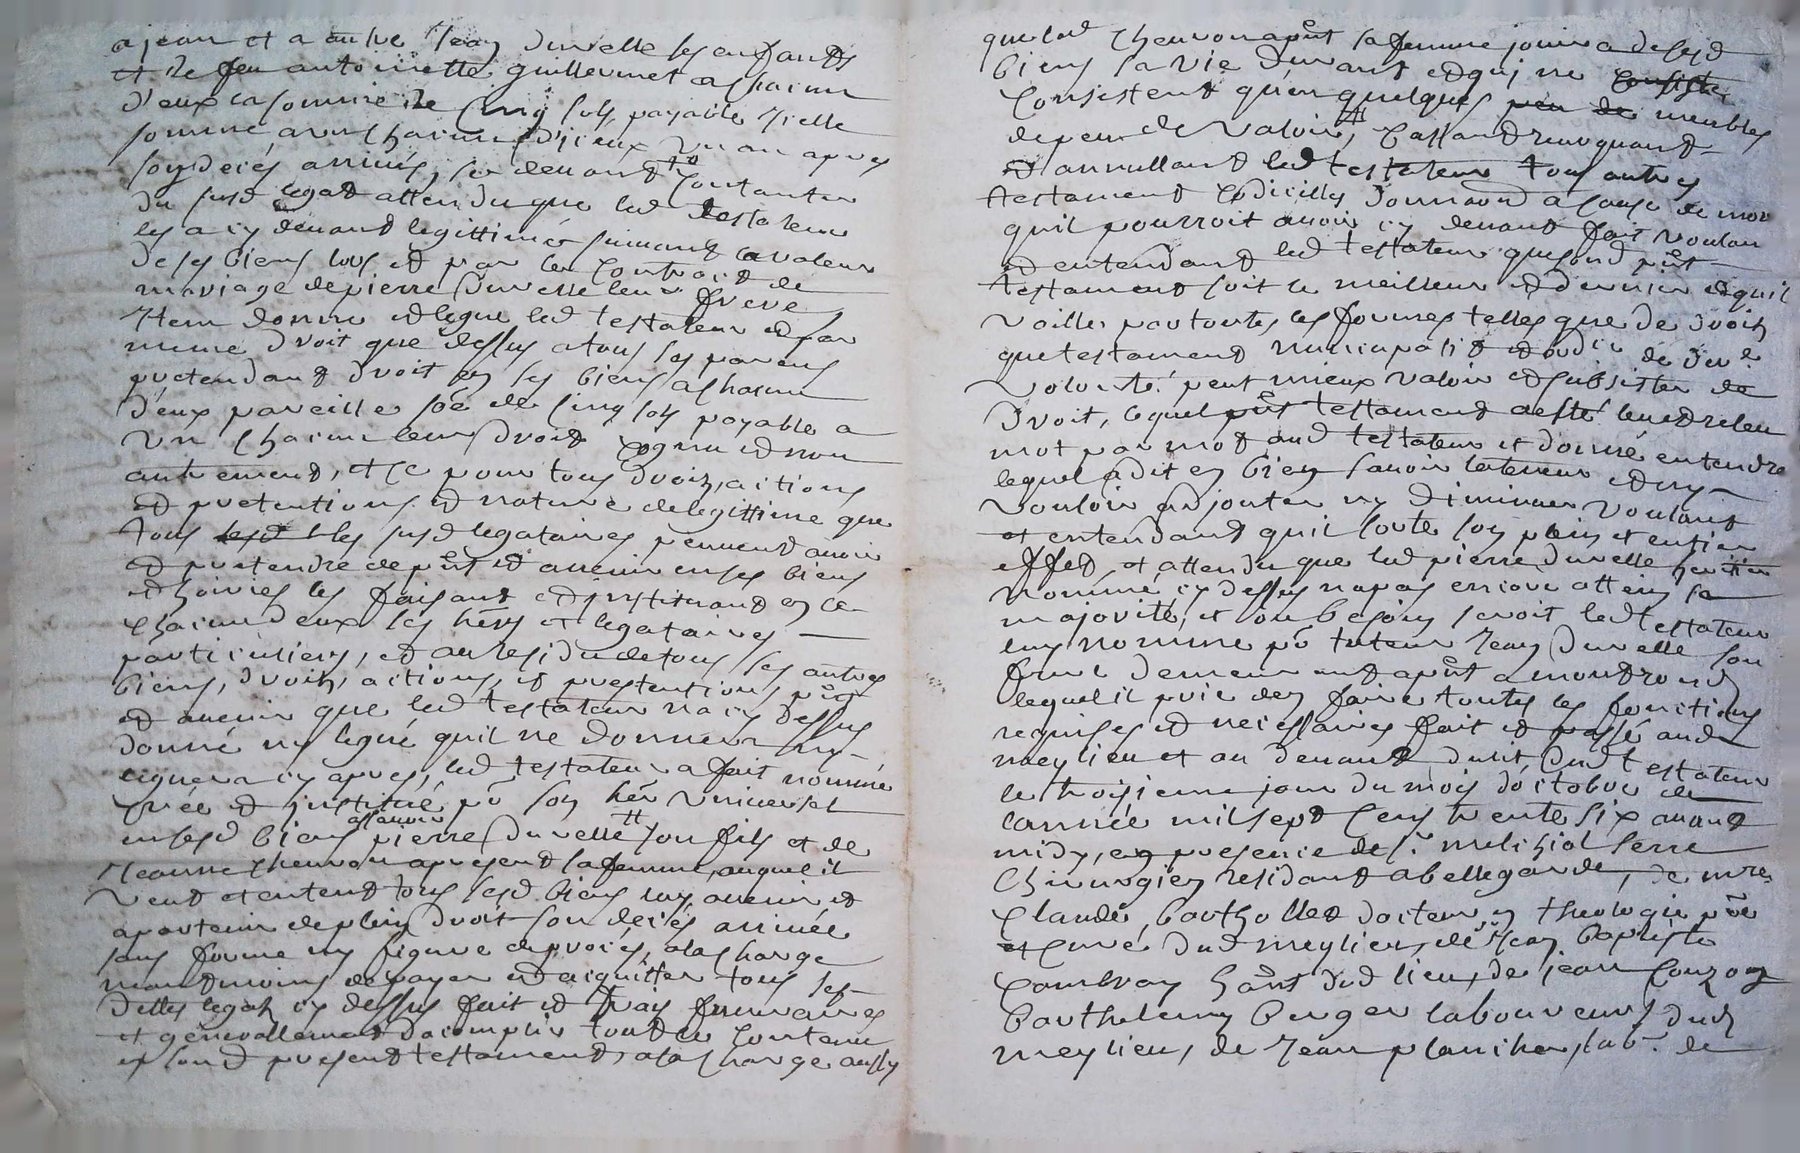 a jean et a autre Jean Duvelle ses enfants
et de feu antoinette guillermet a chacun
d'eux la somme de cinq sols payable icelle
somme a un chacun d'iceux un an apres
son deces arrivé, se devant contanter
du susd legat attendu que led testateur
les a cy devant legittimés suivant la valeur
de ses biens lors et par le contract de
mariage de pierre Duvelle leur frere,
Item donne et legue led testateur et par
meme droit que dessus a tous ses parens
pretendant droit en ses biens a chacun
d'eux pareille soe de cinq sols payable a
un chacun leur droit cognu et non
autrement, et ce pour tous droits, actions
et pretentions et nature de legittime que
tous les susd legataires peuvent avoir
et pretendre de pnt et avenir en ses biens
et hoiries les faisant et instituant en ce
chacun deux ses hers et legataires
particuliers, et au residu de tous ses autres
biens, droits, actions, et pretentions pnts
et avenir que led testateur na cy dessus
donné ny legué quil ne donnera ny
leguera cy apres, led testateur a fait nommé
créé et institué po son her universel
en sesd biens ascavoir pierre Duvelle son fils et de
Jeanne chevron a present sa femme, auquel il
veut et entend tous sesd biens luy avenir et
apartenir de plein droit son deces arrivé
sans forme ny figure de proces, a la charge
neantmoins de payer et acquitter tous ses
dettes legats cy dessus fait et frais funeraires
et generallement dacomplir tout le contenu
en sond present testament, a la charge aussy
que lad chevron a pnt sa femme jouira de sesd
biens sa vie durant et qui ne
consistent qu'en quelques meubles
de peu de valoir, cassant revoquant
et annullant led testateur tous autres
testament codicilles donnaon a cause de mort
quil pourroit avoir cy devant fait voulan
et entendant led testateur que sond pnt
testament soit le meilleur et dernier et quil
vaille par toutes les formes telles que de droit
que testament nuncupatif et ordre de dere
volonté peut mieux valoir et subsister de
droit, lequel pnt testament a esté leu et releu
mot par mot aud testateur et donné entendre
lequel a dit en bien savoir la teneur et ny
vouloir adjouter ny diminuer voulant
et entendant quil sorte son plein et entier
effet, et attendu que led pierre Duvelle heritier
nommé cy dessus napas encore atteint sa
majorité, et ou besoin seroit led testateur
luy nomme po tuteur Jean Duvelle son
frere demeurant a pnt a montrond
lequel il prie den faire toutes les fonctions
requises et necessaires fait et passé aud
meylieu et au devant du lit dud testateur
le troisieme jour du mois doctobre de
l'année mil sept cens trente six avant
midy, en presence de sr melchiol serre
chirurgien residant a bellegarde, de mre
Claude barthollet docteur en theologie ptre
et curé dud meylieu, de sr Jean baptiste
hant dud lieu, de jean
barthelemy berger laboureurs dud
meylieu, de Jean plancher, labr de